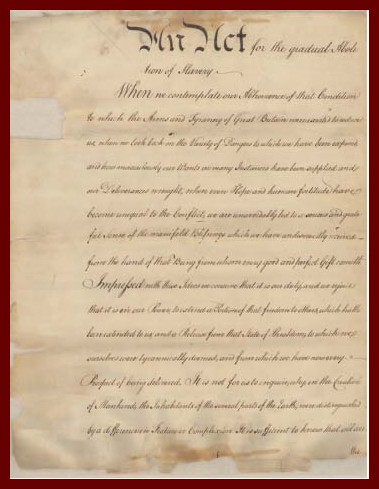 An Act for the gradual Aboli
tion of Slavery
When we contemplate our Abhorence of that Condition
to which the Arms and Tyranny of Great Britain were exerted to reduce
us, when we look back on the Variety of Dangers to which we have been exposed
and how miraculously our Wants in many Instances have been supplied and
our Deliverances wrought, when even Hope and human fortitude have
become unequal to the Conflict; we are unavoidably led to a serious and grate
ful Sense of the manifold Blessings which we have undeservedly received
from the hand of that Being from whom every good and perfect Gift cometh
Impressed with these Ideas we conceive that it is our duty, and we rejoice
that it is in our Power to extend a Portion of that freedom to others, which hath
been extended to us; and a Release from that State of Thraldom, to which we
ourselves were tyrannically doomed, and from which we have now every
Prospect of being delivered. It is not for us to enquire, why, in the Creation
of Mankind, the Inhabitants of the several parts of the Earth, were distinguished
by a difference in Feature or Complexion. It is sufficient to know that all are
the